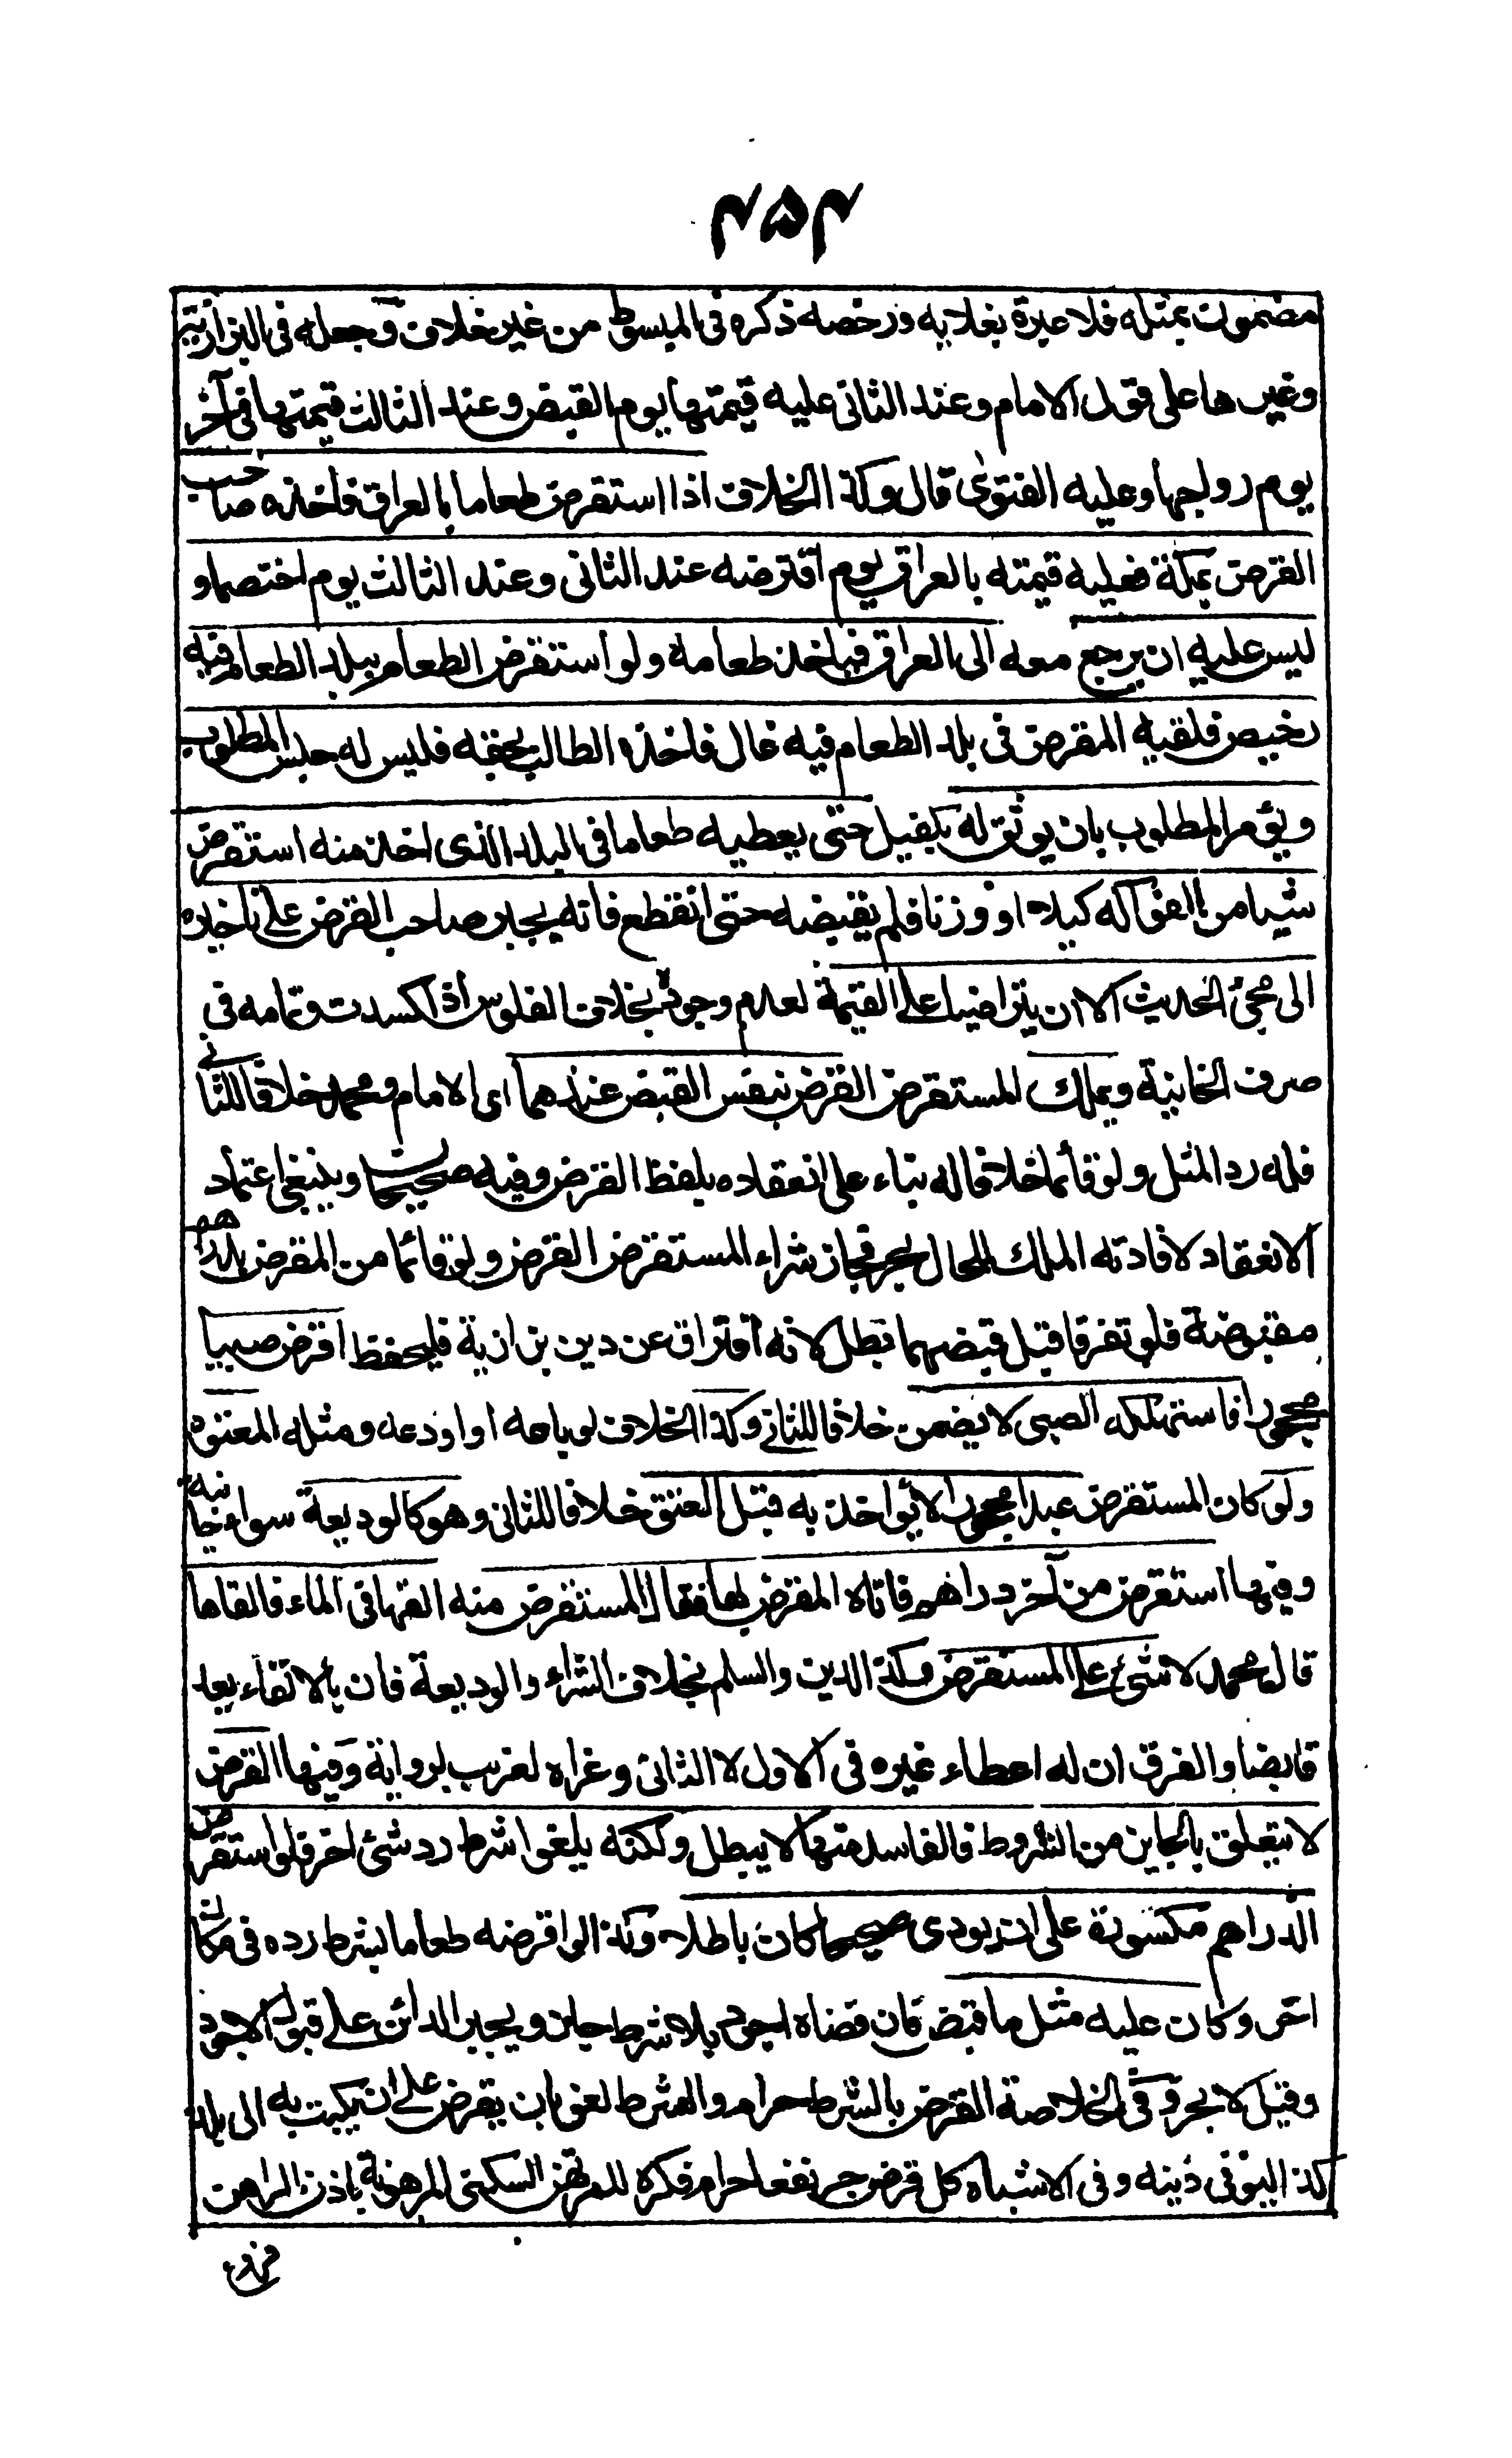 ۴۵۴
مضمون بمثله فلا عبرة بغلايه ورخصه ذكره فى المبسوط من غير خلاف وجعله فى البزازية
وغيرها على قول الامام وعند الثانى عليه قيمتها يوم القبض وعند الثالث قيمتها فى آخر
يوم رواجها وعليه الفتوى قال وكذا الخلاف اذا استقرض طعاما بالعراق فاخذه صاحب
القرض بمكة فعليه قيمته بالعراق يوم اقترضه عند الثانى وعند الثالث يوم اختصما و
ليس عليه ان يرجع معه الى العراق فياخذ طعامه ولو استقرض الطعام ببلد الطعام فيه
رخيص فلقيه المقرض فى بلد الطعام فيه غال فاخذه الطالب بحقه فليس له حبس المطلوب
ويؤمر المطلوب بان يوثق له بكفيل حتى يعطيه طعاما فى البلد الذى اخذ منه استقرض
شيا من الفواكه كيلا او وزنا فلم يقبضه حتى انقطع فانه يجبر صاحب القرض على تاخيره
الى مجئ الحديث الا ان يتراضيا على القيمة لعدم وجوده بخلاف الفلوس اذا كسدت وتمامه فى
صرف الخانية ويملك المستقرض القرض بنفس القبض عندهما اى الامام ومحمد خلافا للثانى
فله رد المثل ولو قائما خلافا له بناء على انعقاده بلفظ القرض وفيه صحيحان وينبغى اعتماد
الانعقاد لافادته الملك للحال بحر فجاز شراء المستقرض القرض ولو قائما من المقرض بدراهم
مقبوضة فلو تفرقا قبل قبضهما بطل لانه افتراق عن دين بزازية فليحفظ اقرض صبيا
محجورا فاستهلكه الصبى لا يضمن خلافا للثانى وكذا الخلاف لو باعه او اودعه ومثله المعتوه
ولو كان المستقرض عبدا محجورا لا يؤاخذ به قبل العتق خلافا للثانى وهو كالوديعة سواء خانية
وفيها استقرض من آخر دراهم فاتاه المقرض بها فقال المستقرض منه القها فى الماء فالقاها
قال محمد لا شئ على المستقرض وكذا الدين والسلم بخلاف الشراء والوديعة فان بالالقاء يعد
قابضا والفرق ان له اعطاء غيره فى الاول لا الثانى وعزاه لغريب الرواية وفيها القرض
لا يتعلق بالجايز من الشروط فالفاسد منها لا يبطله ولكنه يلغو اشرط رد شئ اخر فلو استقرض
الدراهم مكسورة على ان يودى صحيحا كان باطلا وكذا لو اقرضه طعاما بشرط رده فى مكان
اخر وكان عليه مثل ما قبض فان قضاه اجود بلا شرط جاز ويجبر الدائن على قبول الاجود
وقيل لا بحر وفى الخلاصة القرض بالشرط حرام والشرط لغو بان يقرض على ان يكتب به الى بلد
كذا ليوفى دينه وفى الاشباه كل قرض جر نفعا حرام فكره للمرتهن السكنى المرهونة باذن الراهن